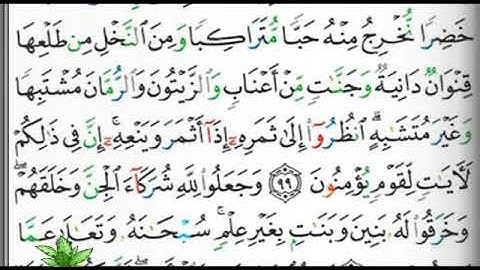 خَضِرًا نُّخْرِجُ مِنْهُ حَبًّا مُّتَرَاكِبًا وَمِنَ ٱلنَّخْلِ مِن طَلْعِهَا
قِنْوَانٌ دَانِيَةٌ وَجَنَّٰتٍ مِّنْ أَعْنَابٍ وَٱلزَّيْتُونَ وَٱلرُّمَّانَ مُشْتَبِهًا
وَغَيْرَ مُتَشَٰبِهٍ ۗ ٱنظُرُوٓا۟ إِلَىٰ ثَمَرِهِۦٓ إِذَآ أَثْمَرَ وَيَنْعِهِۦٓ ۚ إِنَّ فِى ذَٰلِكُمْ
لَـَٔايَٰتٍ لِّقَوْمٍ يُؤْمِنُونَ ٩٩ وَجَعَلُوا۟ لِلَّهِ شُرَكَآءَ ٱلْجِنَّ وَخَلَقَهُمْ ۖ
وَخَرَقُوا۟ لَهُۥ بَنِينَ وَبَنَٰتٍۭ بِغَيْرِ عِلْمٍ ۚ سُبْحَٰنَهُۥ وَتَعَٰلَىٰ عَمَّا